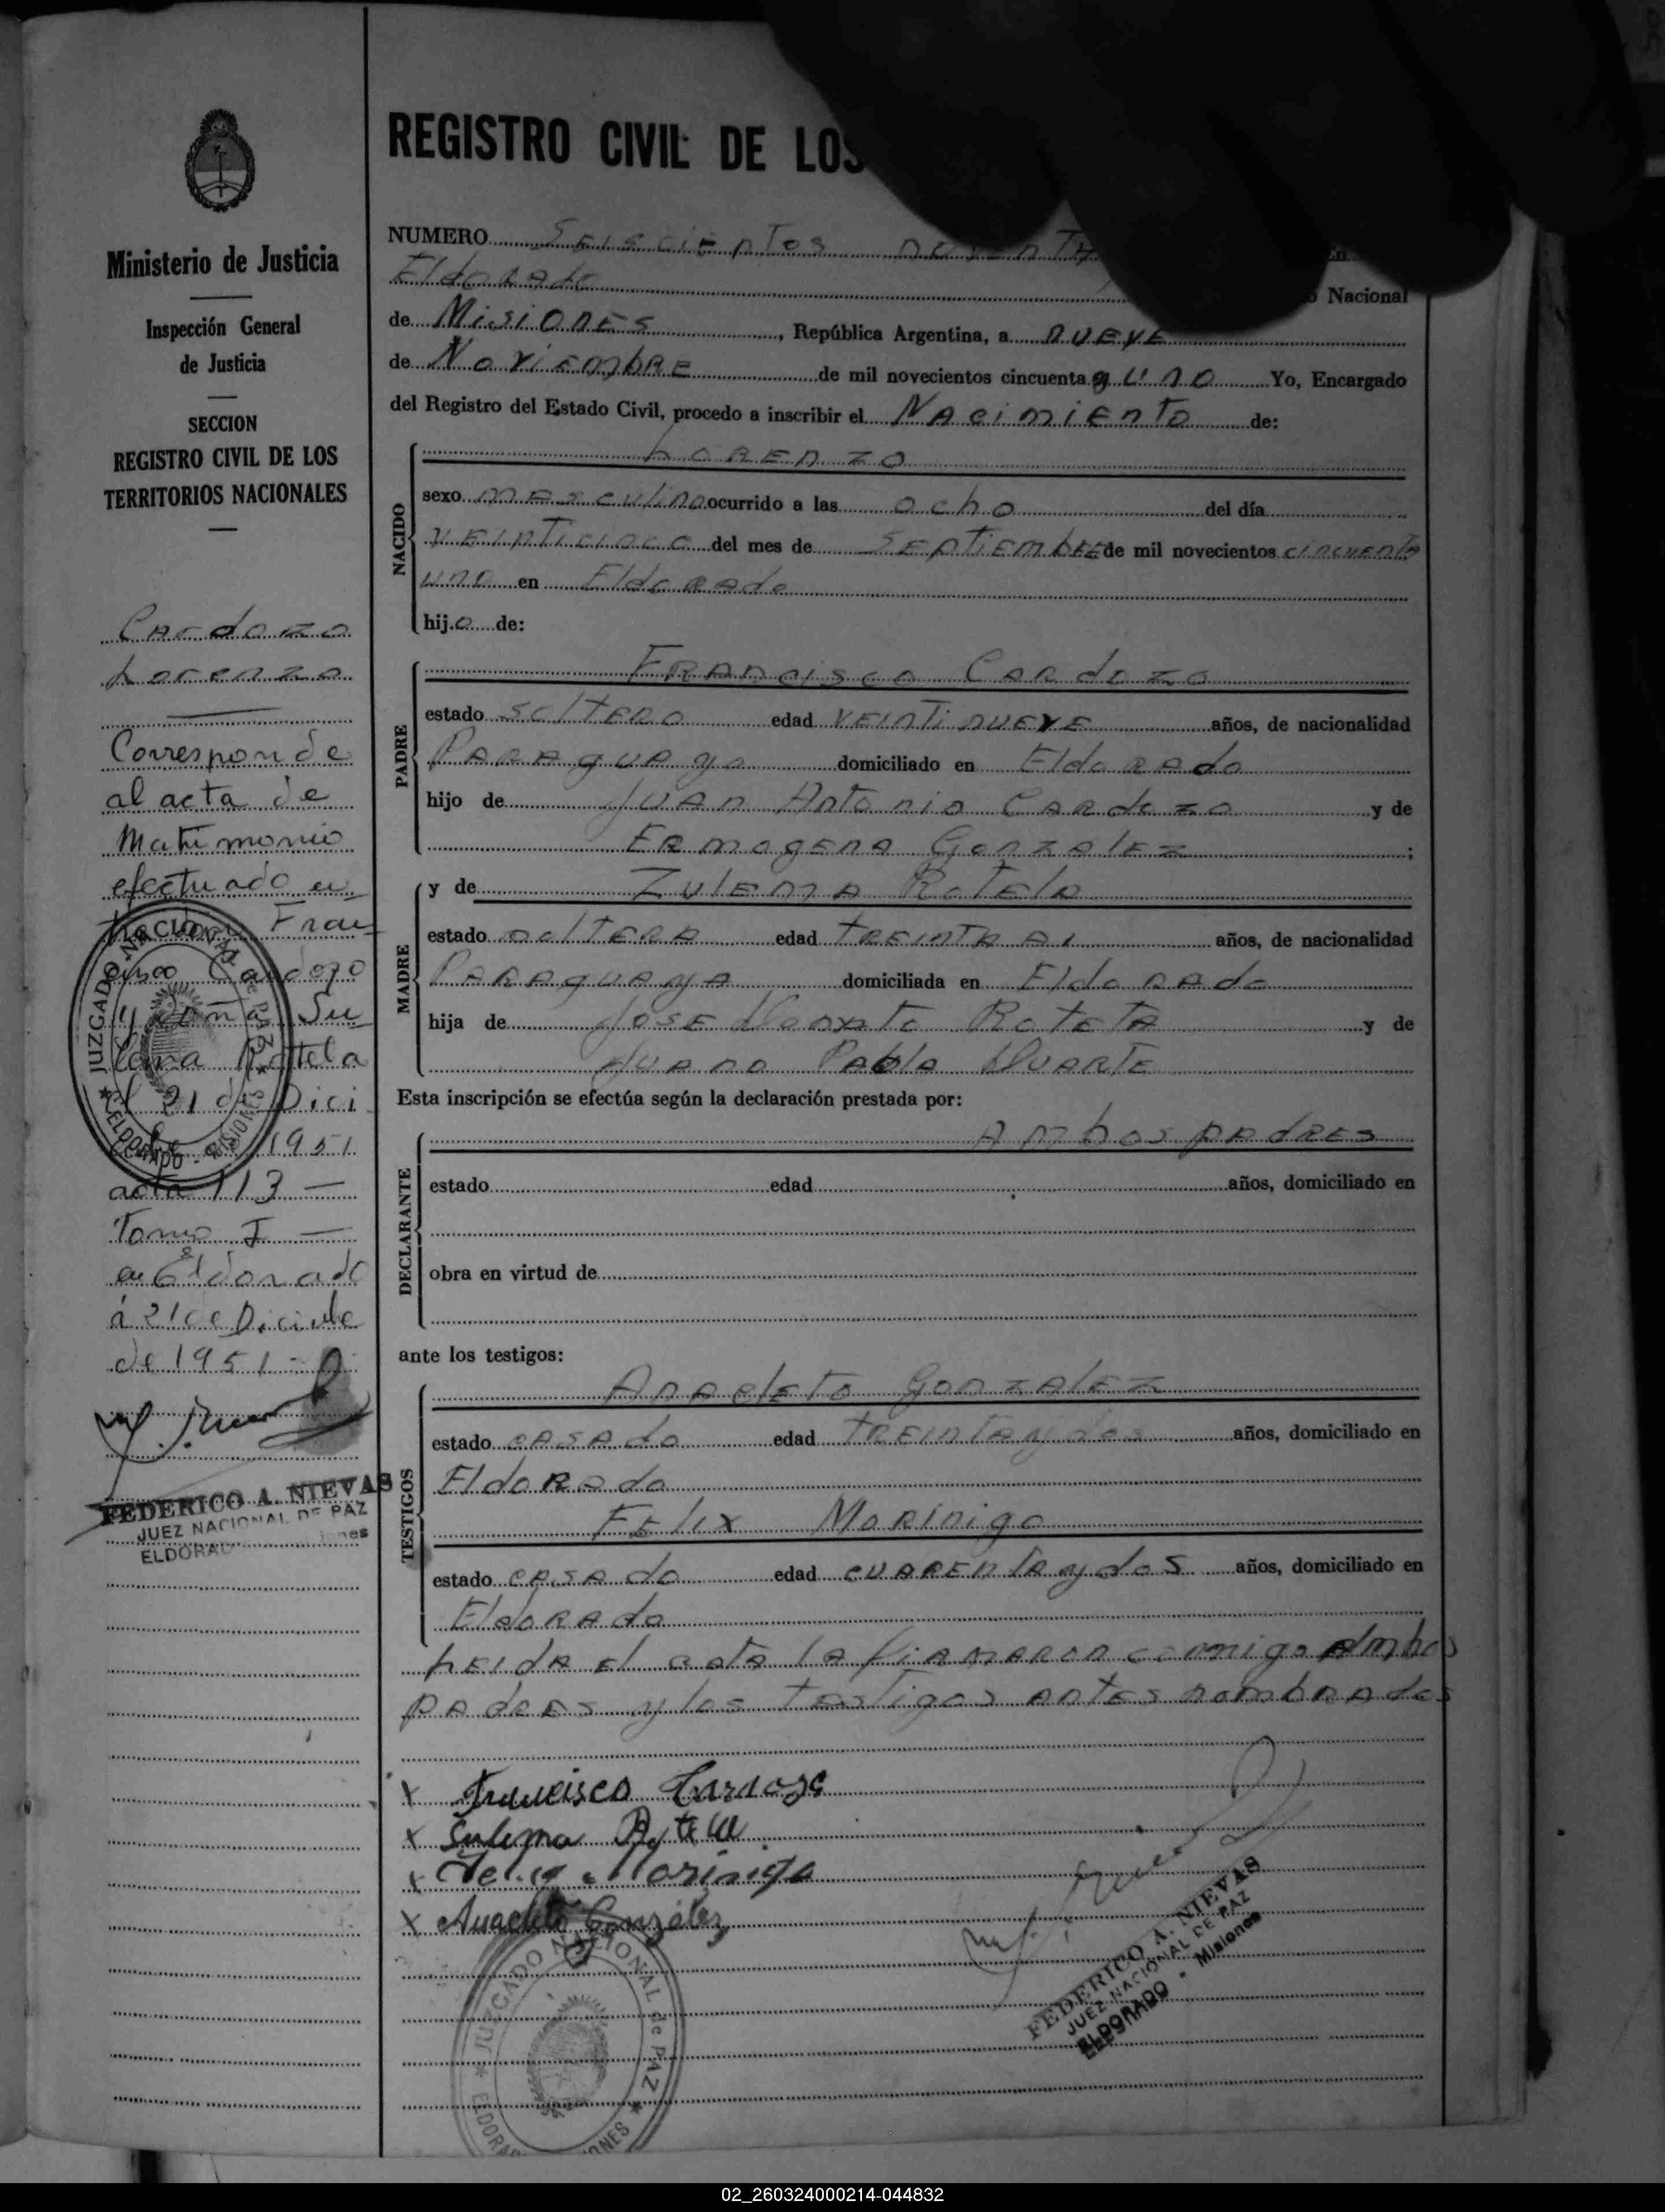 Ministerio de Justicia
Inspección General
de Justicia
SECCION
REGISTRO CIVIL DE LOS
TERRITORIOS NACIONALES
Cardozo
Lorenzo
Corresponde
al acta de
Matrimonio
efectuado en
Fran
cisco Cardozo
y doña Su
Rotela
el 21 de Dici
1951
acta 113 —
Tomo I —
Eldorado
á 21 de
de 1951 -
FEDERICO A. NIEVAS
JUEZ NACIONAL DE PAZ
ELDORAD iones
JUZGADO NACIONAL de PAZ
ELDORADO - MISIONES
REGISTRO CIVIL DE LOS
NUMERO Seiscientos noventa
Eldorado Nacional
de Misiones, República Argentina, a nueve
de Noviembre de mil novecientos cincuenta y uno Yo, Encargado
del Registro del Estado Civil, procedo a inscribir el Nacimiento de:
NACIDO
Lorenzo
sexo masculino ocurrido a las ocho del día
veinticinco del mes de Septiembre de mil novecientos cincuenta
uno en Eldorado
hijo de:
PADRE
Francisco Cardozo
estado soltero edad veintinueve años, de nacionalidad
Paraguayo domiciliado en Eldorado
hijo de Juan Antonio Cardozo y de
Ermogena Gonzalez ;
MADRE
y de Zulema Rotela
estado soltera edad treinta años, de nacionalidad
Paraguaya domiciliada en Eldorado
hija de Jose Rotela y de
Juana Pabla Duarte
Esta inscripción se efectúa según la declaración prestada por:
DECLARANTE
Ambos padres
estado edad años, domiciliado en
obra en virtud de
ante los testigos:
TESTIGOS
Anacleto Gonzalez
estado casado edad treinta y dos años, domiciliado en
Eldorado
Felix Morinigo
estado casado edad cuarenta y dos años, domiciliado en
Eldorado
Leida el acta la firmaron conmigo Ambos
padres y los testigos antes nombrados
X Francisco Cardozo
X Sulema Rotela
X Morinigo
X Anacleto González
FEDERICO A. NIEVAS
JUEZ NACIONAL DE PAZ
ELDORADO - Misiones
JUZGADO NACIONAL de PAZ
02_260324000214-044832